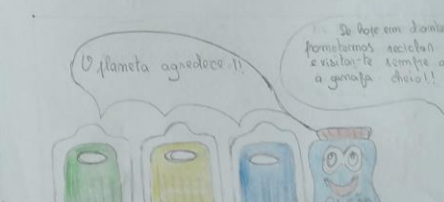 O planeta agradece!!
Se hoje em diante
prometermos reciclar
e visitar-te sempre
a garrafa cheia!!